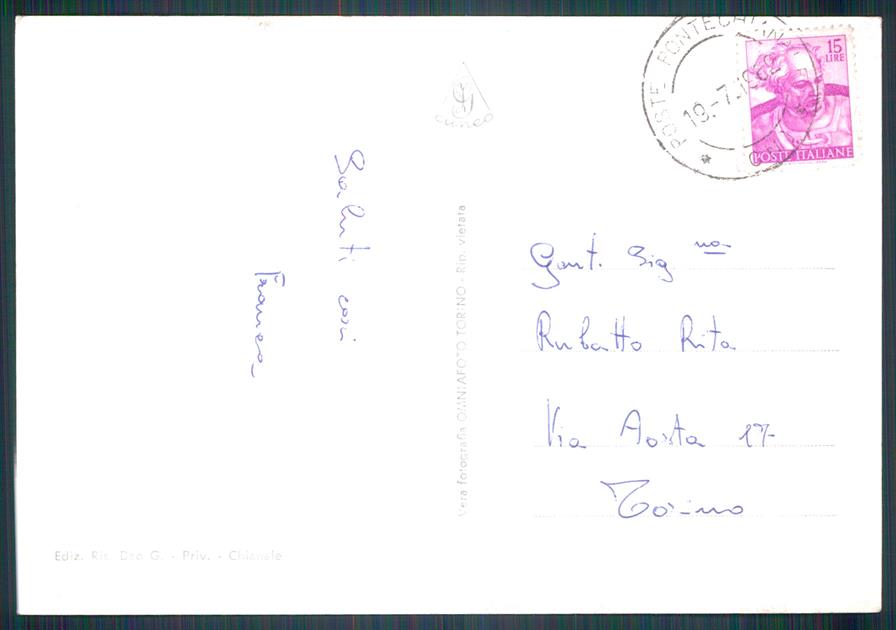 cuneo
POSTE PONTECHIANALE
19.-7.1962
15
LIRE
POSTE ITALIANE
Saluti cari
Franco
Vera fotografia OMNIAFOTO TORINO - Rip. vietata
Gent. Sig na
Rubatto Rita
Via Aosta 17
Torino
Ediz. Ris. G. - Priv. - Chianale